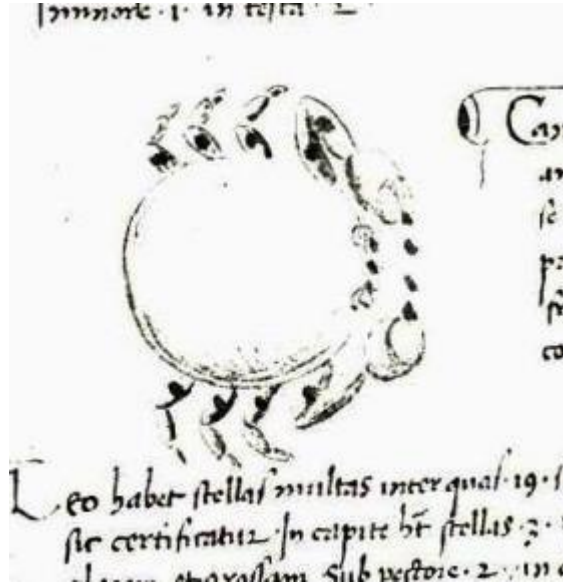 minore · 1 · in testa · 2 ·
Can
an
se
pe
co
Leo habet stellas multas inter quas · 19 · s
sic certificatur In capite ht stellas · 3 ·
Sub pectore · 2 · in